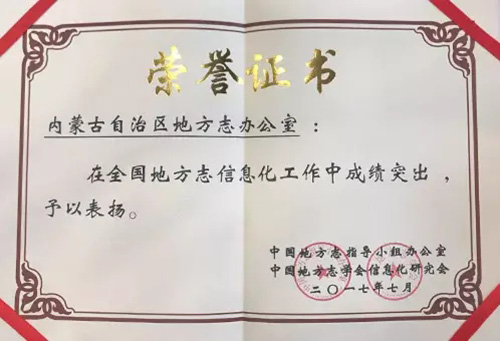 荣誉证书
内蒙古自治区地方志办公室：
在全国地方志信息化工作中成绩突出，
予以表扬。
中国地方志指导小组办公室
中国地方志学会信息化研究会
二〇一七年七月